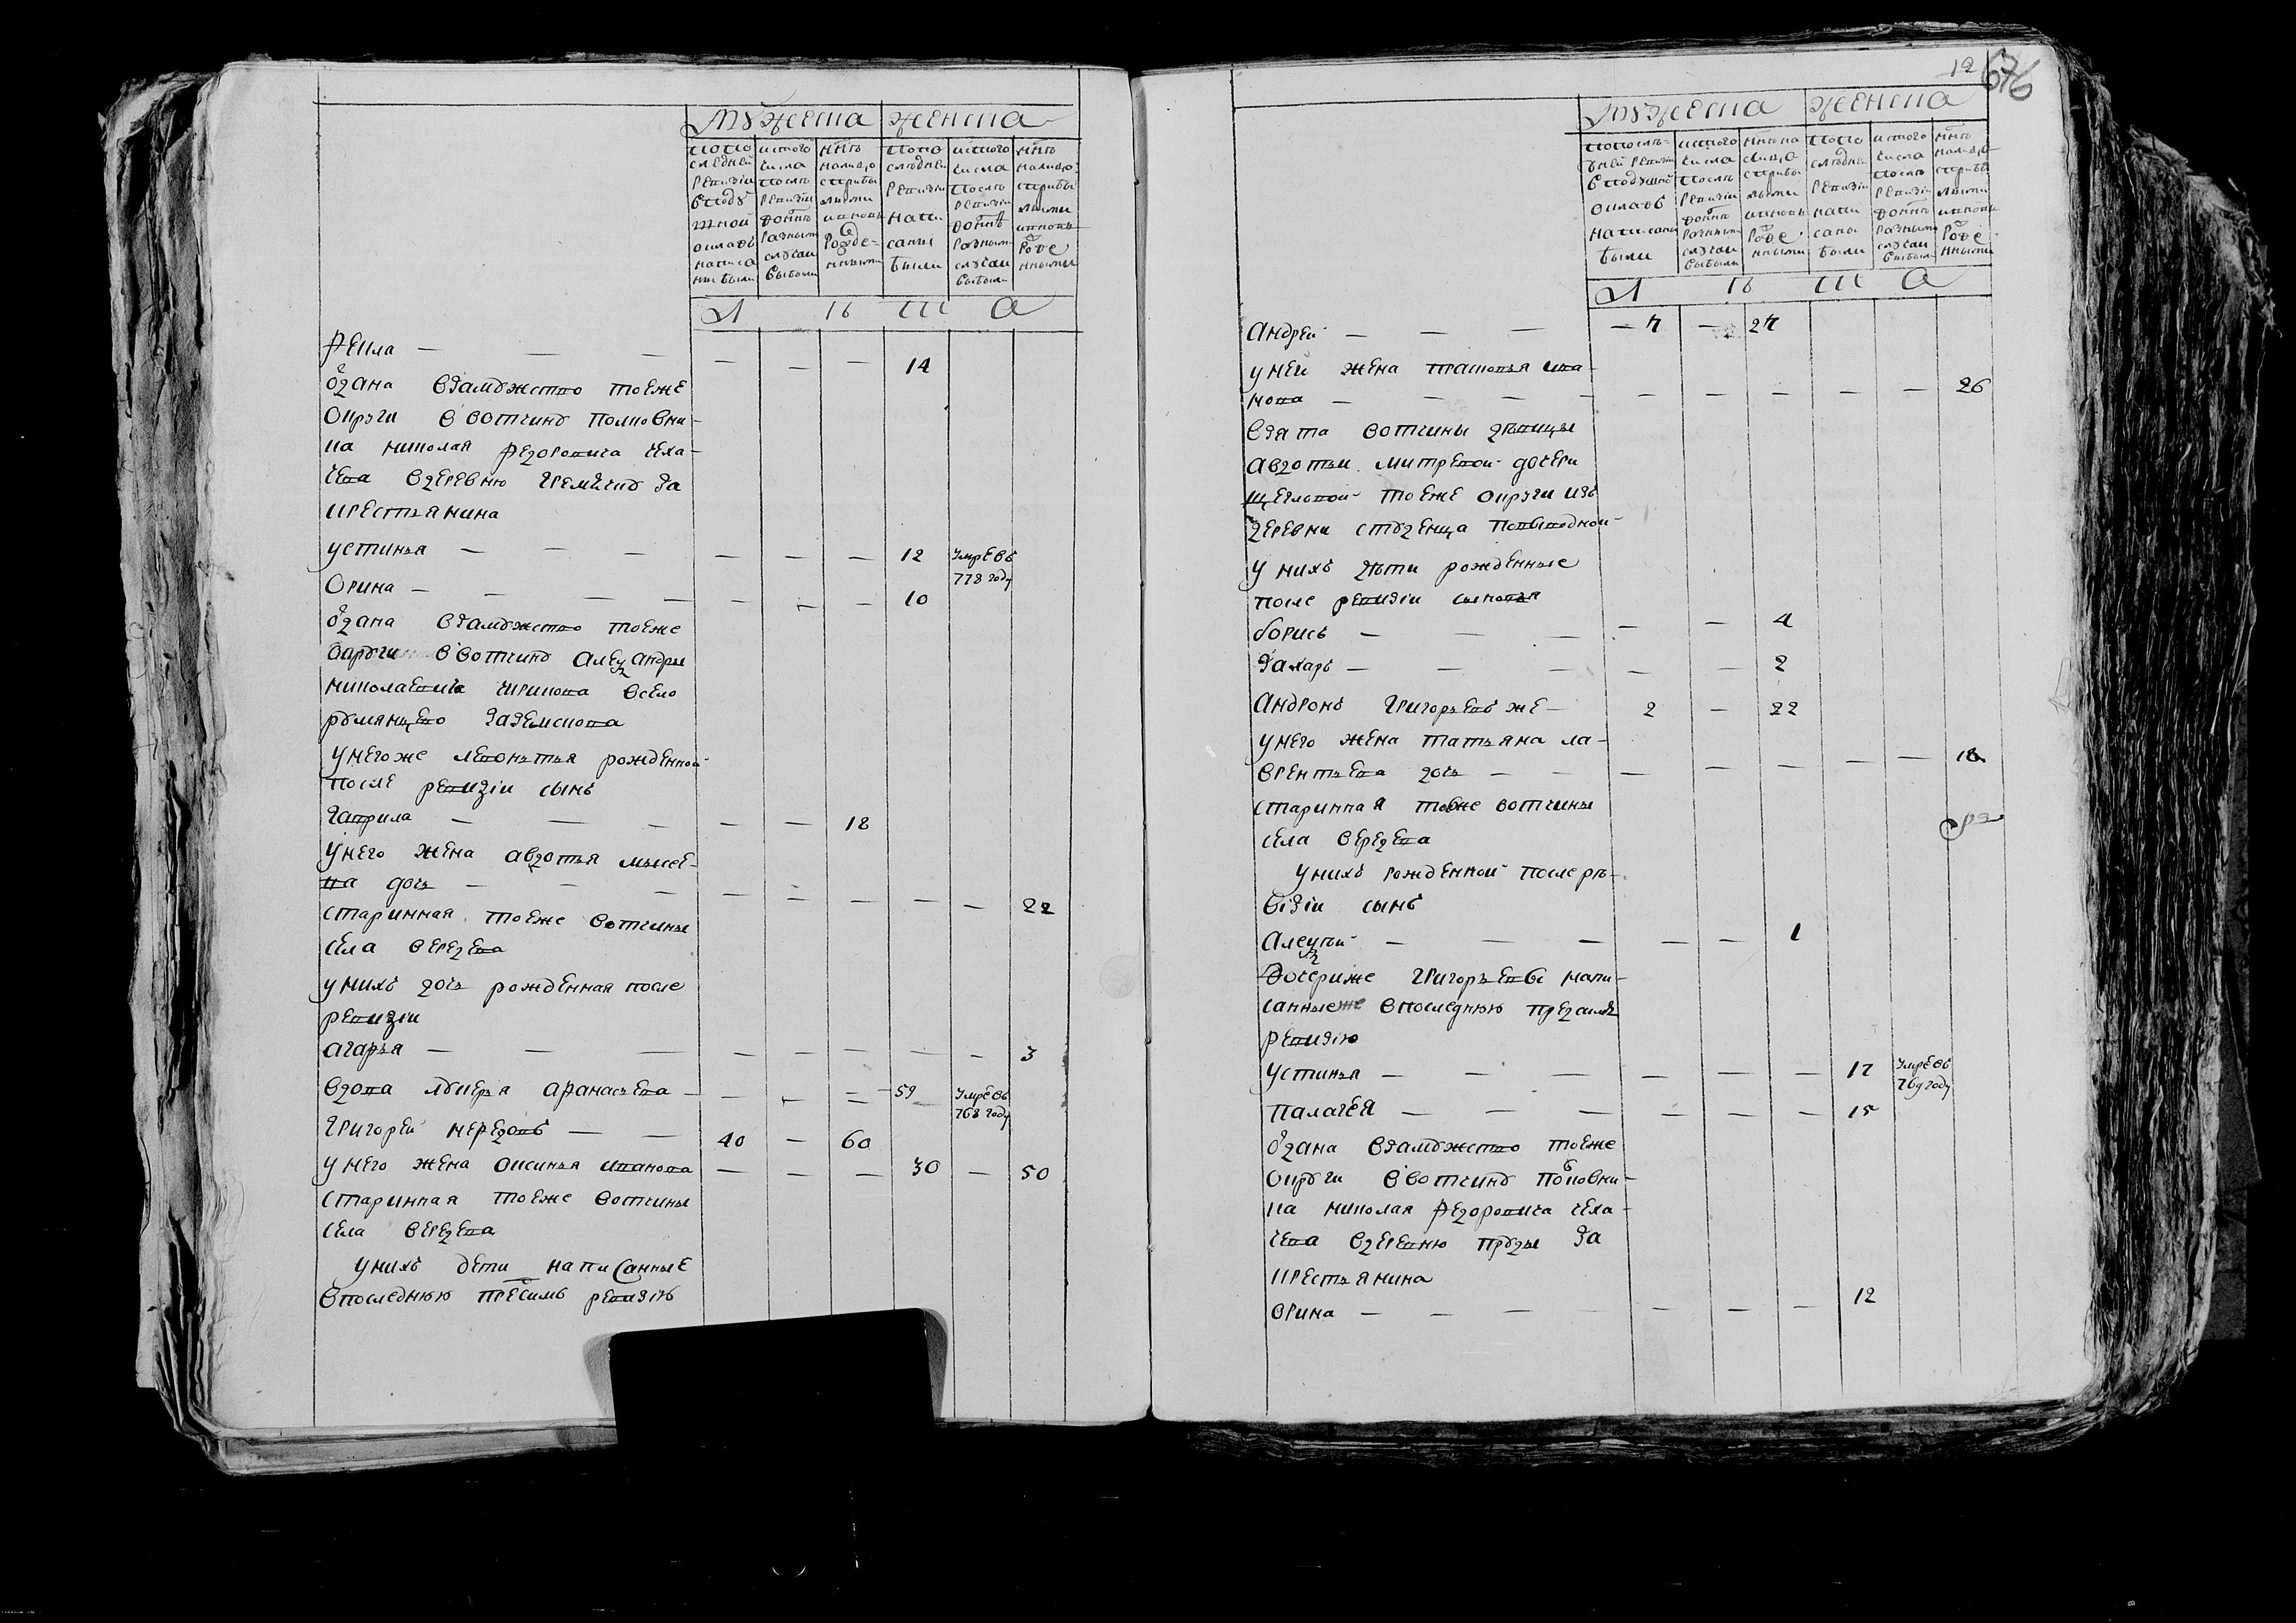 мужеска женска
попо следней ревизiи в поду шной окладъ написа ны были
ис того числа после ревизiи до ннѣ разными случаи выбыли
ннѣ на лицо с прибылыми и вновь рожденными
попо следней ревизiи написаны были
ис того числа после ревизiи до ннѣ разными случаи выбыли
ннѣ на лицо с прибылыми и вновь рожденными
л ѣ т а
фекла — — — — — — 14
отдана взамужство тоеже
округи в вотчину полковни-
ка николая федоровича
в деревню за
крестьянина
устинья — — — — — — 12 умре въ 778 году
орина — — — — — — — 10
отдана взамужство тоеже
округи в вотчину александры
николаевича в село
румянцево
у него же леонтья рожденной
после ревизiи сынъ
гаврила — — — — — 18
у него жена авдотья
ва дочь — — — — — — — — 22
старинная тоеже вотчины
села
у нихъ дочь рожденная после
ревизiи
агафья — — — — — — — — 3
вдова лукерья афанасьева — — — — 59 умре въ 768 году
григорей — — 40 — 60
у него жена аксинья иванова — — — 30 — 50
старинная тоеже вотчины
села
у нихъ дети написанные
в последнюю пред симъ ревизiю
12
676
мужеска женска
попослѣ- дней ревизiи в подушной окладъ написаны были
ис того числа после ревизiи до ннѣ разными случаи выбыли
ннѣ на лицо с прибылыми и вновь рожденными
попо следней ревизiи написаны были
ис того числа после ревизiи до ннѣ разными случаи выбыли
ннѣ на лицо с прибылыми и вновь рожденными
л ѣ т а
андрей — — — — 7 — 27
у ней жена ива-
нова — — — — — — — — — 26
взята вотчины девицы
авдотьи митревой дочери
щегловой тоеже округи изъ
деревни студенца по выводной
у нихъ дѣти рожденные
после ревизiи сыновья
борисъ — — — — — 4
захаръ — — — — — 2
андронъ григорьевъ же — 2 — 22
у него жена татьяна ла-
врентьева дочь — — — — — — — 18
старинная тоеже вотчины
села
у нихъ рожденной после ре-
визiи сынъ
алексѣй — — — — — 1
дочериже григорьевы напи-
санныеже в последнюю пред симъ
ревизiю
устинья — — — — — — 17 умре въ 769 году
палагея — — — — — — 15
отдана взамужство тоеже
округи в вотчину полковни-
ка николая федоровича
в деревню пруды за
крестьянина
орина — — — — — — — 12